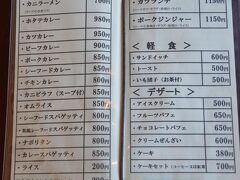 ・カニラーメン 700円
・ホタテカレー 980円
・カツカレー 950円
・ビーフカレー 900円
・ポークカレー 850円
・シーフードカレー 850円
・チキンカレー 850円
・カニピラフ(スープ付) 850円
・オムライス 850円
・シーフードスパゲッティ 800円
・和風シーフードスパゲッティ 800円
・ナポリタン 800円
・カレースパゲッティ 800円
・ライス 200円
1150円
・ポークジンジャー 1150円
<軽食>
・サンドイッチ 600円
・トースト 500円
・いも団子(お茶付) 500円
<デザート>
・アイスクリーム 500円
・フルーツパフェ 650円
・チョコレートパフェ 650円
・クリームぜんざい 600円
・ケーキ 380円
・ケーキセット 700円